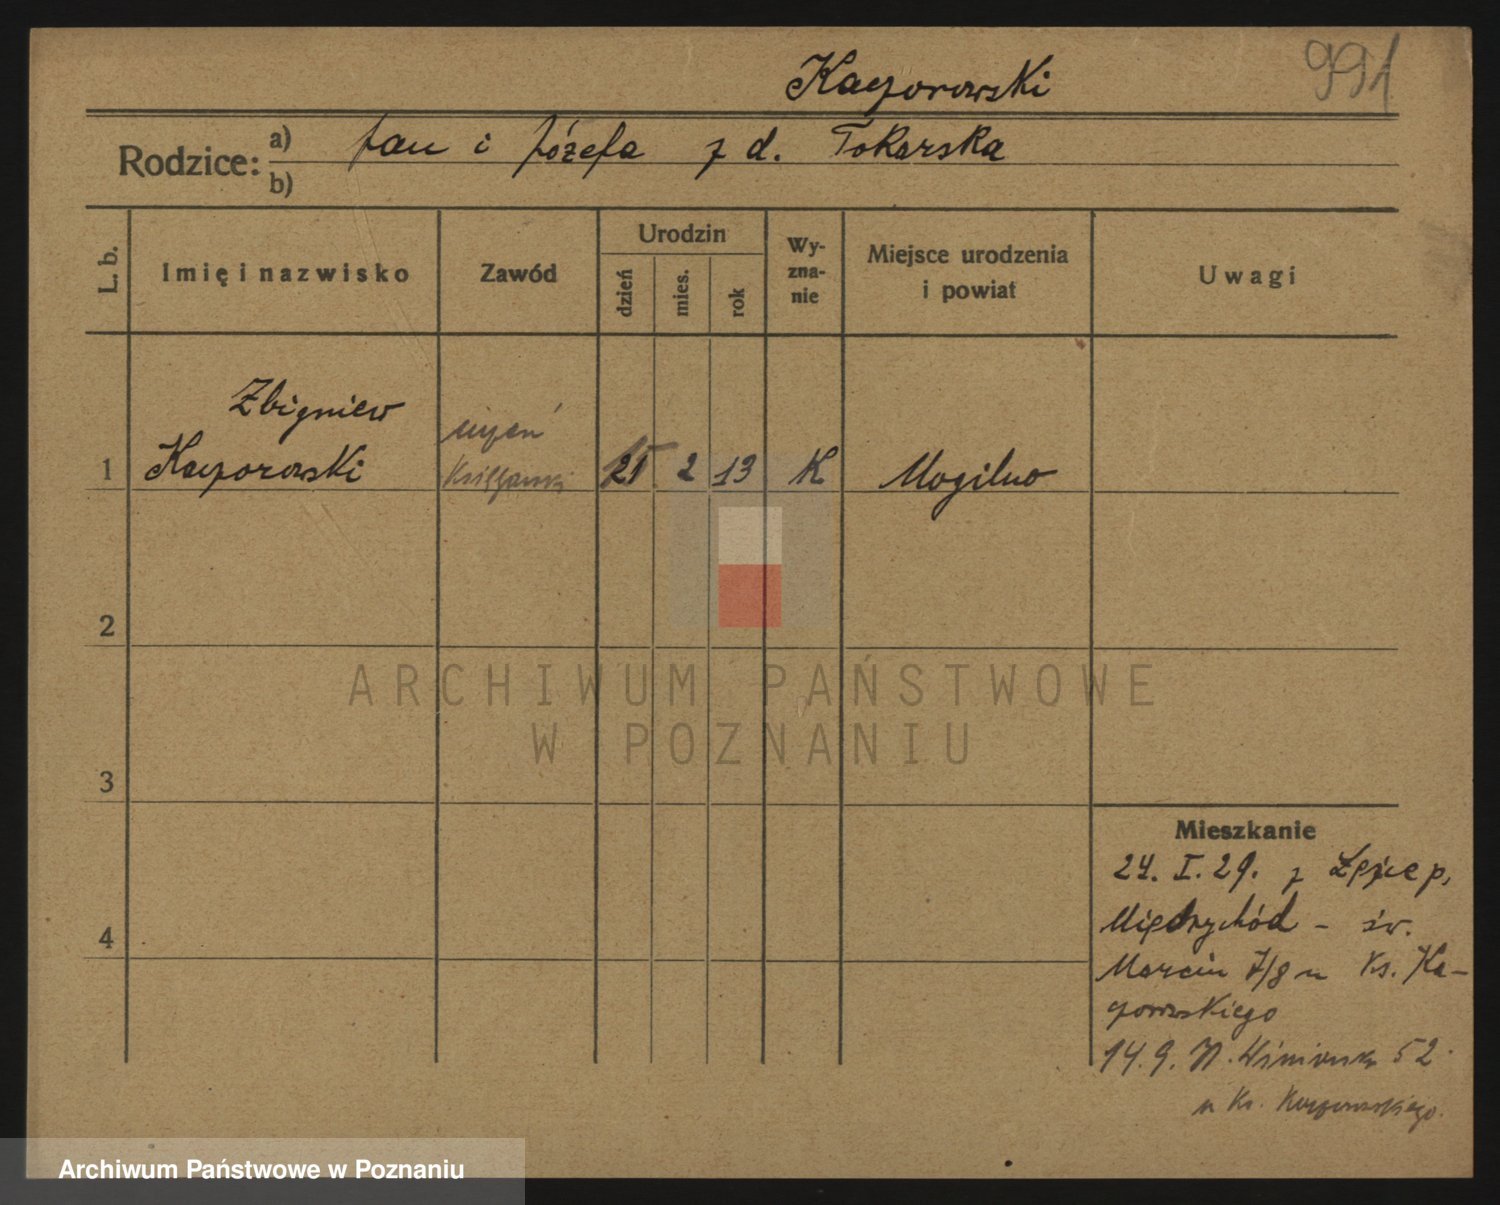 Kaczorowski
991
Rodzice: a) Jan i Józefa z d. Tokarska
b)
L. b.
Imię i nazwisko
Zawód
Urodzin
dzień
mies.
rok
Wy-
zna-
nie
Miejsce urodzenia
i powiat
Uwagi
Zbigniew
uczeń
1 Kaczorowski
21 2 13 K Mogilno
2
3
4
Mieszkanie
24. I. 29. z p.
Międzychód - św.
Marcin 7/8 u Ks. Ka-
czorowskiego
14. 9. 52
u Ks. Kaczorowskiego.
ARCHIWUM PAŃSTWOWE
W POZNANIU
Archiwum Państwowe w Poznaniu